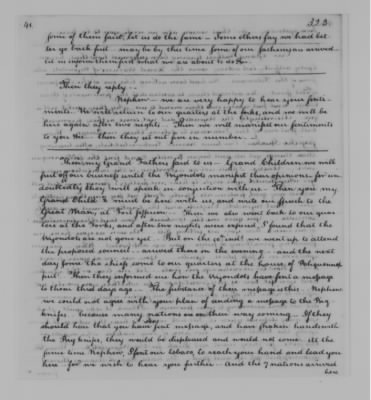 41.
323.
some of them said, let us do the same – Some others say we had bet-
ter go back first – may be by this time some of our fathers are arrived
let us inform them first what we are about to do &c.
Then they reply –
Nephew – we are very happy to hear your senti-
ments. We will return to our quarters at the Forks, and we will be
here again after Then we will manifest our sentiments
to you &c. – then they set out five in number.
Grand Fathers said to us – Grand Children we will
put off our business until the Wyondots manifest their opinions, for un-
doubtedly they will speak in conjunction with us. Then you my
Grand Child. mind be here with us, and with our speech to the
Great Man, at Fort Jefferson. Then we also went back to our quar-
ters at the Forks, and after two nights were expired, I found that the
Wyondots are not gone yet. But on the 10th inst. we went up to attend
the proposed council – arrived there on the evening – and the next
day some the chiefs come to our quarters at the house of
Then they informed me how the Wyondots have sent a message
to them three days ago. The substance of these message this. Nephew
we could not agree with your plan of sending a message to the Big
knifes – because many nations are on their way coming. If they
should hear that you have sent message, and have shaken hands with
the Big knifes, they would be displeased and would not come. At the
same time Nephew, I sent our tobacco to reach your hand and lead you
here – for we wish to hear you further. And the 7 nations arrived
here